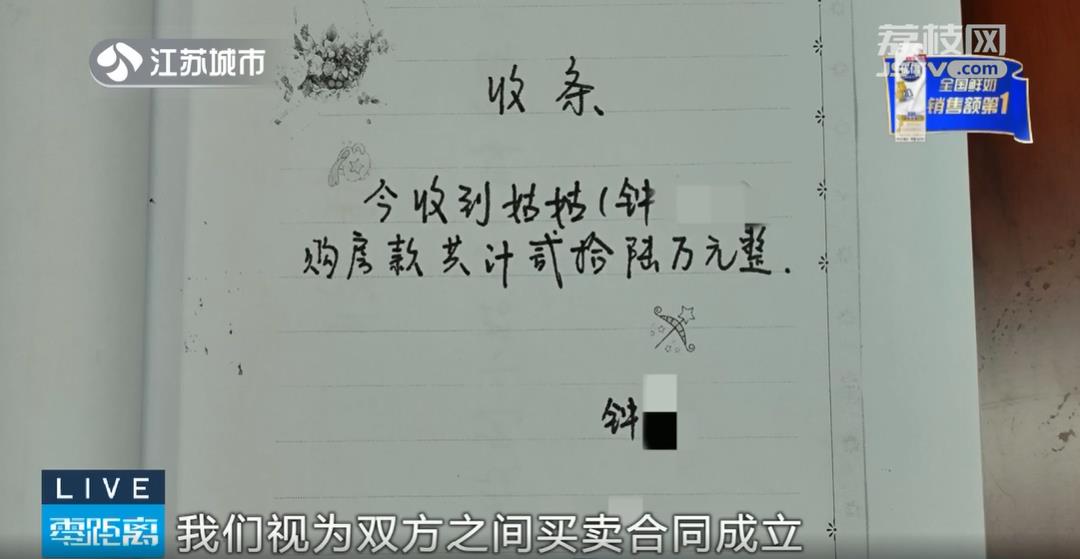 江苏城市
荔枝网
jstv.com
全国鲜奶
销售额第1
收条
今收到姑姑(钟
购房款共计贰拾陆万元整.
钟
LIVE
零距离
我们视为双方之间买卖合同成立